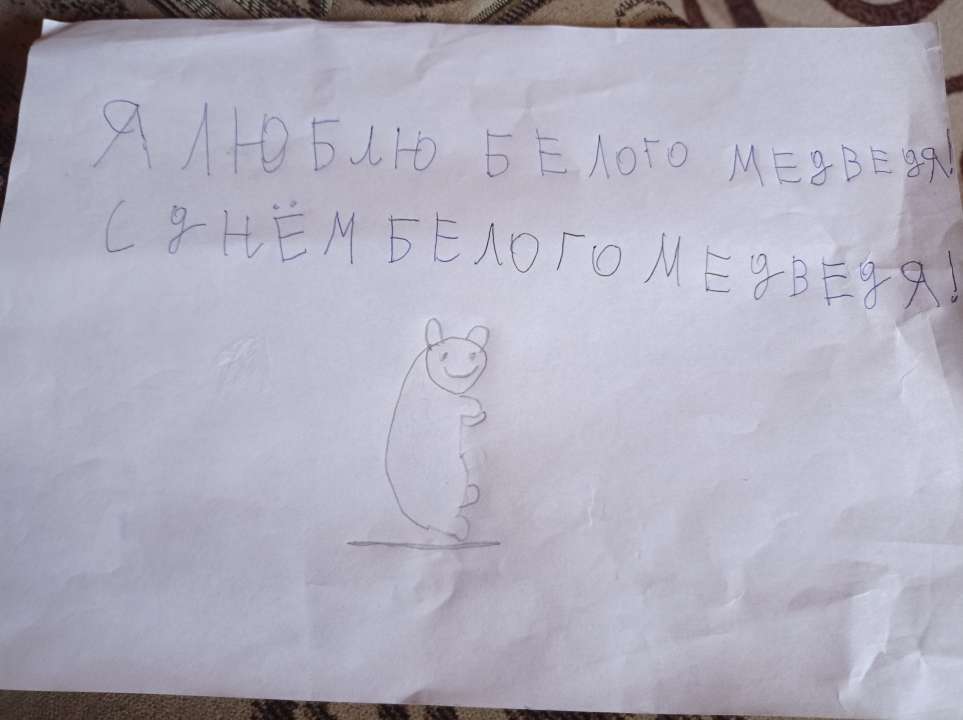 Я ЛЮБЛЮ БЕЛОГО МЕДВЕДЯ!
С ДНЁМ БЕЛОГО МЕДВЕДЯ!